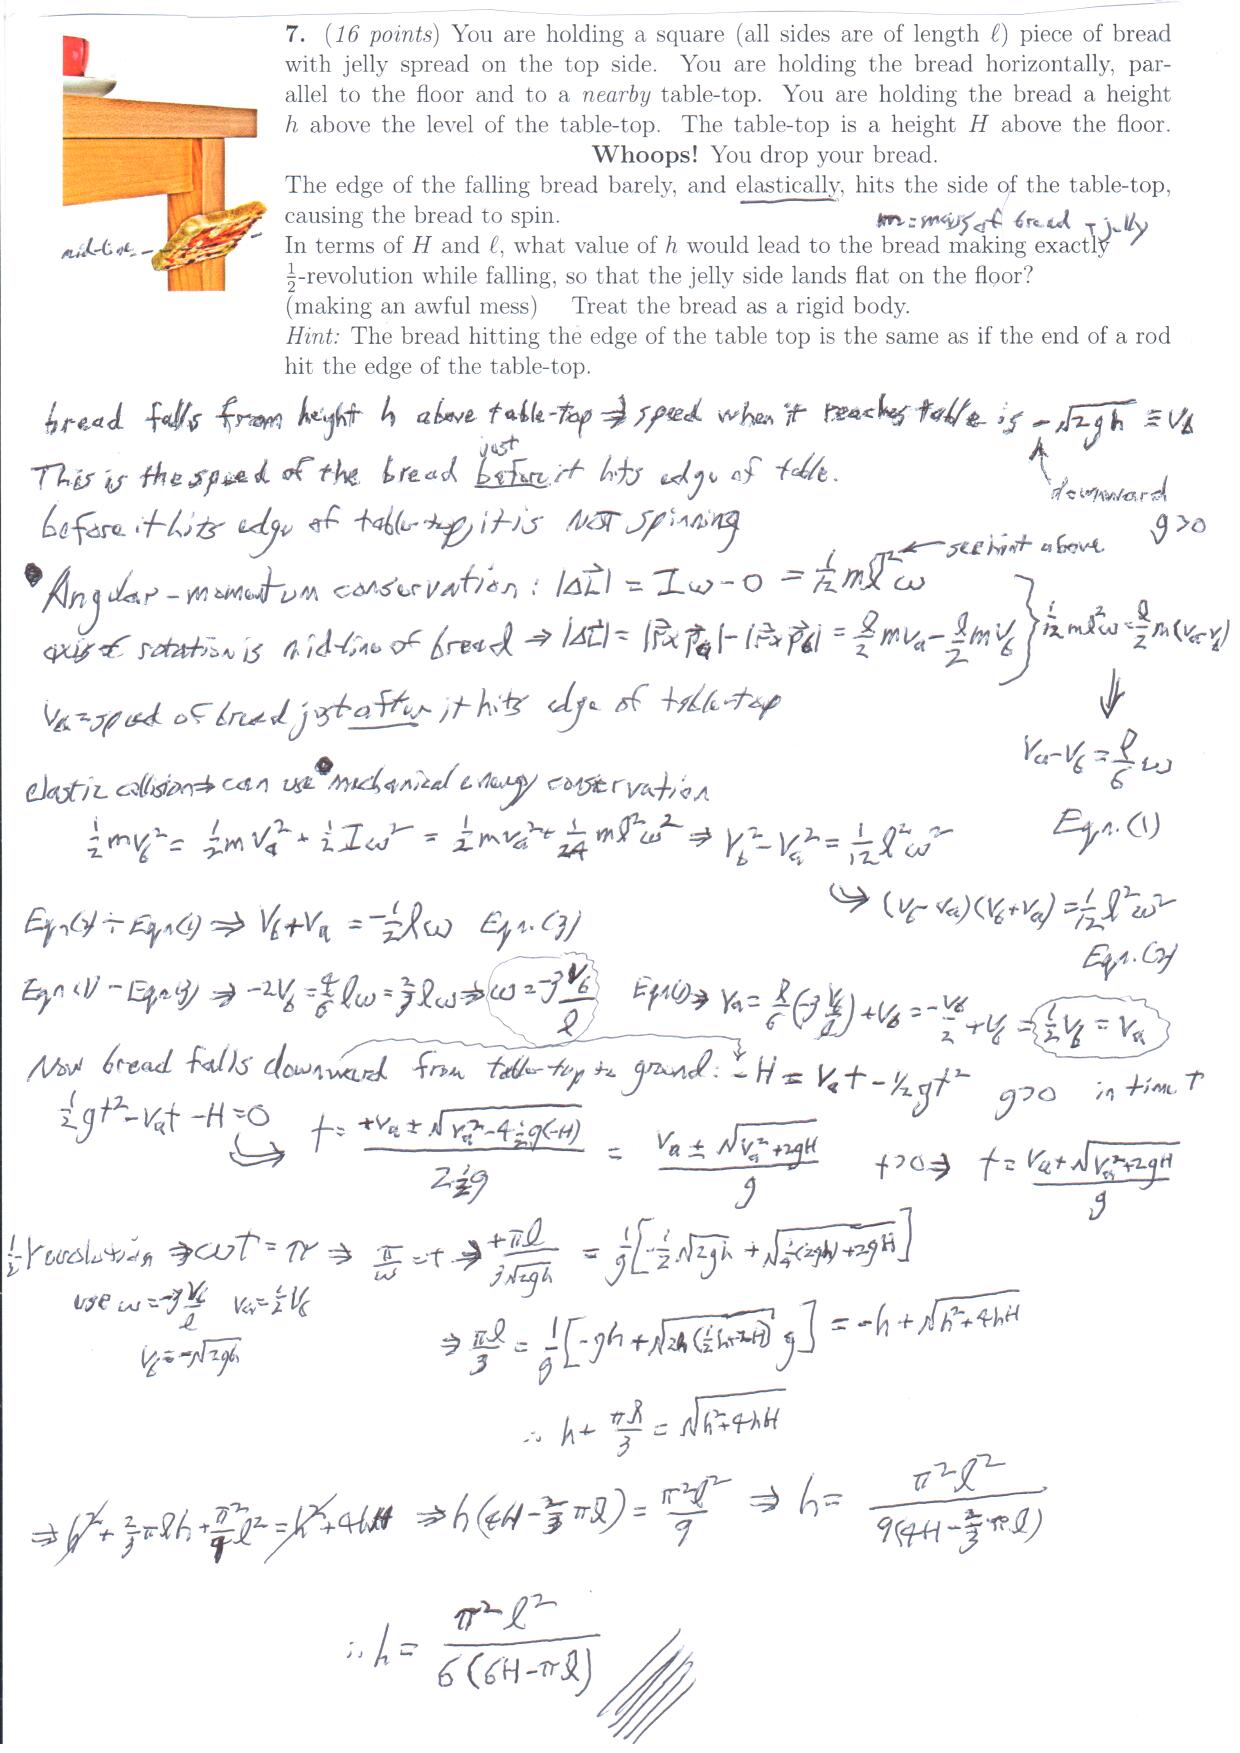 7. (16 points) You are holding a square (all sides are of length ℓ) piece of bread
with jelly spread on the top side. You are holding the bread horizontally, par-
allel to the floor and to a nearby table-top. You are holding the bread a height
h above the level of the table-top. The table-top is a height H above the floor.
Whoops! You drop your bread.
The edge of the falling bread barely, and elastically, hits the side of the table-top,
causing the bread to spin.
m = mass of bread + jelly
In terms of H and ℓ, what value of h would lead to the bread making exactly
mid-line
½-revolution while falling, so that the jelly side lands flat on the floor?
(making an awful mess) Treat the bread as a rigid body.
Hint: The bread hitting the edge of the table top is the same as if the end of a rod
hit the edge of the table-top.
bread falls from height h above table-top ⇒ speed when it reaches table is -√2gh ≡ V_b
This is the speed of the bread just before it hits edge of table.
downward
g>0
before it hits edge of table-top, it is NOT spinning
see hint above
• Angular-momentum conservation: |ΔL⃗| = Iω - 0 = 1/12 mℓ²ω
axis of rotation is mid-line of bread ⇒ |ΔL⃗| = |r⃗×p⃗_a| - |r⃗×p⃗_b| = ℓ/2 mv_a - ℓ/2 mv_b } 1/12 mℓ²ω = ℓ/2 m(v_a-v_b)
V_a = speed of bread just after it hits edge of table-top
V_a - V_b = ℓ/6 ω
Eqn.(1)
elastic collision ⇒ can use • mechanical energy conservation
½mv_b² = ½mv_a² + ½Iω² = ½mv_a² + 1/24 mℓ²ω² ⇒ V_b² - V_a² = 1/12 ℓ²ω²
↪ (v_b - v_a)(v_b + v_a) = 1/12 ℓ²ω²
Eqn.(2)
Eqn(2) ÷ Eqn(1) ⇒ V_b + V_a = -½ℓω Eqn.(3)
Eqn(1) - Eqn(3) ⇒ -2V_b = 4/6 ℓω = 2/3 ℓω ⇒ ω = -3 V_b/ℓ Eqn(1) ⇒ V_a = ℓ/6 (-3 V_b/ℓ) + V_b = -V_b/2 + V_b = ½V_b = V_a
Now bread falls downward from table-top to ground: -H = V_a t - ½gt² g>0 in time t
½gt² - V_a t - H = 0
↪ t = (+V_a ± √(V_a² - 4·½g(-H))) / (2·½g) = (V_a ± √(V_a² + 2gH)) / g t>0 ⇒ t = (V_a + √(V_a² + 2gH)) / g
½ revolution ⇒ ωt = π ⇒ π/ω = t ⇒ +πℓ/(3√2gh) = 1/g [-½√2gh + √(¼(2gh) + 2gH)]
use ω = -3V_b/ℓ V_a = ½V_b
V_b = -√2gh
⇒ πℓ/3 = 1/g [-gh + √(2h(½h+2H)) g] = -h + √(h² + 4hH)
∴ h + πℓ/3 = √(h² + 4hH)
⇒ h² + 2/3 πℓh + π²/9 ℓ² = h² + 4hH ⇒ h(4H - 2/3 πℓ) = π²ℓ²/9 ⇒ h = π²ℓ² / 9(4H - 2/3 πℓ)
∴ h = π²ℓ² / 6(6H - πℓ)